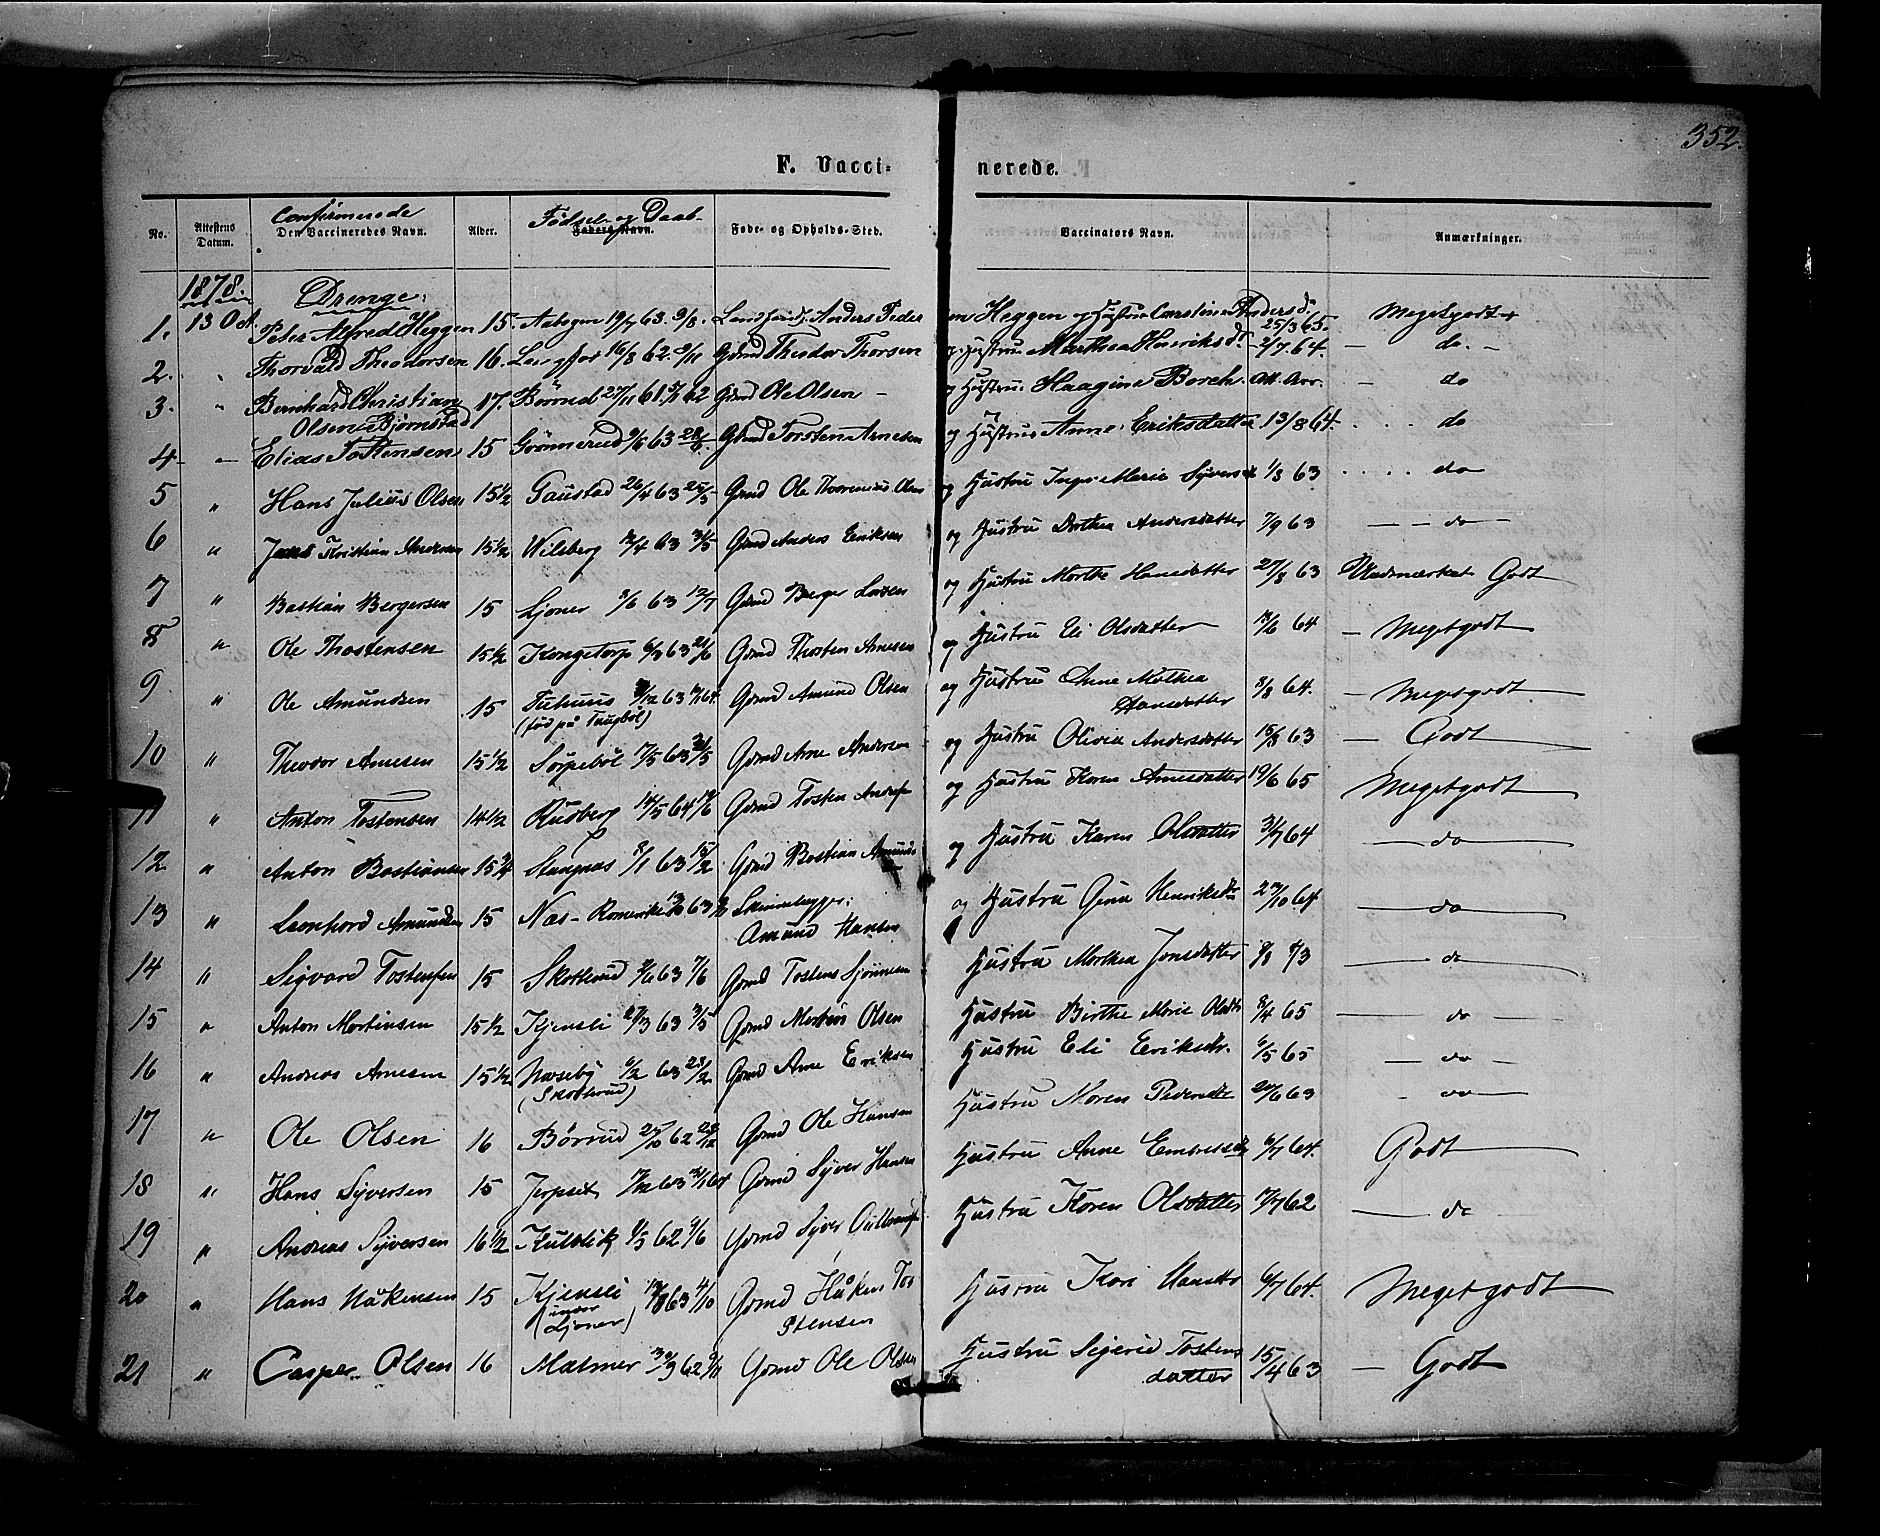 352.
F. Vacci-nerede.
No. Attestens Datum. Confirmerede Den Vaccineredes Navn. Alder. Fødsel- og Daab- Faders Navn. Føde- og Opholds-Sted. Vaccinators Navn. Anmærkninger.
1878. Drenge:
1. 13 Oct. Peter Alfred Heggen 15. 19/7 63. 9/8. Anders Peder en Heggen og Hustru Andersd. 25/3 65. Megetgodt
2. " Thorvald Theodorsen 16. 16/8 62. Gbmd Theodor Thorsen og Hustru Marthea Henriksdr. 2/7 64. — do. —
3. " Bernhard Christian Olsen Bjørnstad 17. Børrud 27/11 61 62 Gbmd Ole Olsen — og Hustru Haagine Borch. — do
4 — " Elias Tostensen 15 Grønnerud 63 Gbmd Torsten Arnesen og Hustru Anne Eriksdatter 13/8 64. . . . do
5 " Hans Julius Olsen 15 1/2 Gaustad 26/4 63 25/5 Gbmd Ole Olsen og Hustru Inger Marie Syversdr 1/8 63 . . . . do
6 " Kristian Andersen 15 1/2 Wilberg 12/4 63 31/5 Gbmd Anders Eriksen og Hustru Dorthea Andersdatter 7/9 63 — — do —
7 " Bastian Bergersen 15 Ljoner 3/6 63 12/7 Gbmd Berger Larsen og Hustru Marthe Hansdatter 27/8 63 Udmærket Godt
8 " Ole Thostensen 15 1/2 Kongetorp 6/3 63 21/6 Gbmd Thosten Arnesen og Hustru Eli Olsdatter 64 — Megetgodt
9 " Ole Amundsen 15 Tuhuus /12 63 64 (fød på Taugbøl) Gbmd Amund Olsen og Hustru Anne Mathea Hansdatter 8/8 64. — Megetgodt
10 " Theodor Arnesen 15 1/2 Sørpebøl 17/5 63 31/5 Gbmd Arne Andersen og Hustru Olivia Andersdatter 15/8 63 — Godt
11 " Anton Tostensen 14 1/2 Rudberg 14/5 64 19/6 Gbmd Tosten og Hustru Karen Arnesdatter 19/6 65 Megetgodt
12 " Anton Bastiansen 15 3/4 Stangnæs 8/1 63 15/2 Gbmd Bastian Amunds og Hustru Karen Olsdatter 31/7 64 — do —
13 " Leonhard Amundsen 15 Næs-Romerike 63 Amund Hansen og Hustru Gina Henriksdr 23/10 64 — do —
14 " Sigvard Tostensen 15 Skotterud 63 7/6 Gbmd Tosten Hustru Marthea Jonsdatter 73 — do —
15 " Anton Martinsen 15 1/2 Kjensli 27/3 63 3/5 Gbmd Martin Olsen Hustru Birthe Marie Olsdtr 8/4 65 — do —
16 " Andreas Arnesen 15 1/2 Noreby 6/2 63 23/2 (Skotterud) Gbmd Arne Eriksen Hustru Eli Eriksdr. 6/5 65 — do —
17 " Ole Olsen 16 Børrud 24/10 62 Gbmd Ole Hansen Hustru Maren Pedersdtr 20/6 63 - do —
18 " Hans Syversen 15 Jerpset 63 64 Gbmd Syver Hansen Hustru Anne Embretsdtr 6/7 64. Godt
19 " Andreas Syversen 16 1/2 Kulblik 1/5 62 9/6 Gbmd Syver Hustru Karen Olsdatter 7/7 62 — do
20 " Hans Håkensen 15 Kjensli (under Ljoner) 63 4/10 Gbmd Håken To stensen Hustru Kari Hansdtr 6/7 64. Megetgodt
21 " Casper Olsen 16 Mælmer 62 Gbmd Ole Olsen Hustru Sigerid Tostens datter 15/4 63 — Godt